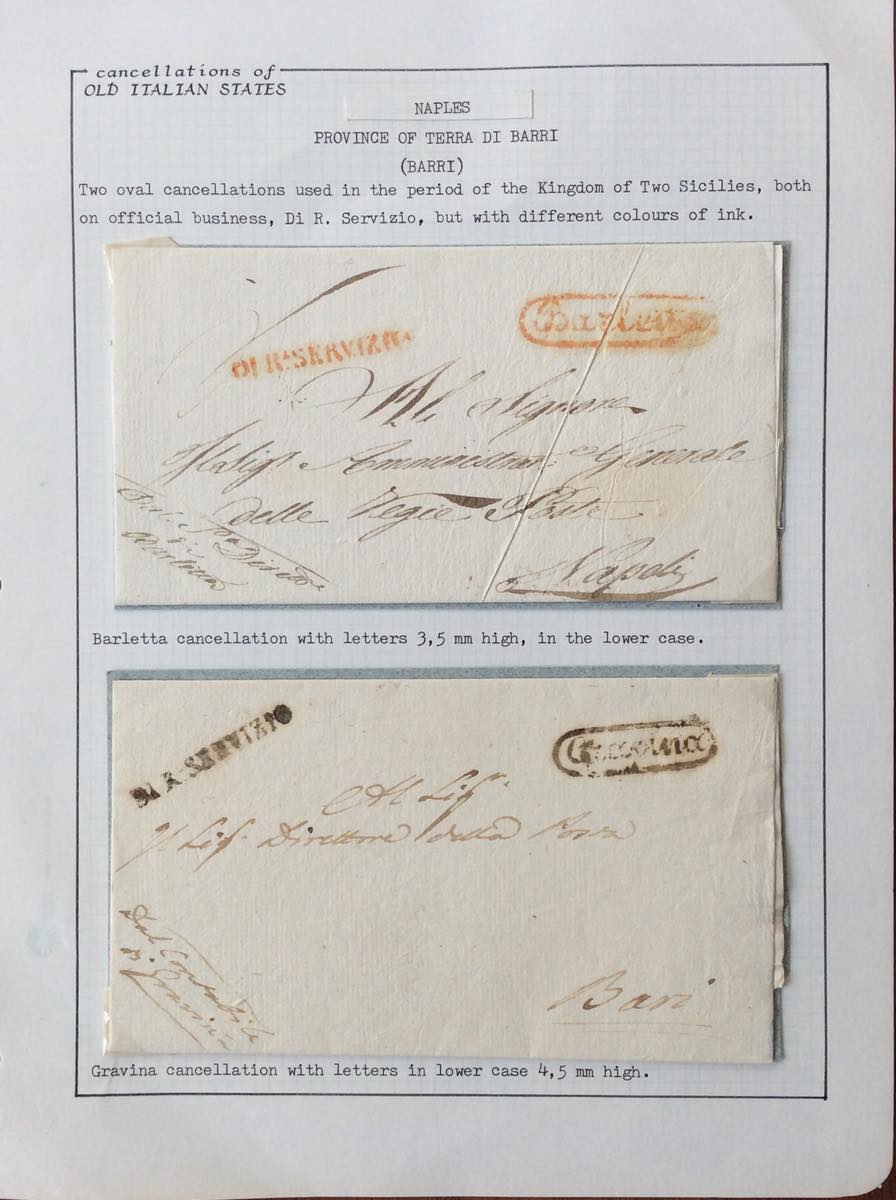 cancellations of
OLD ITALIAN STATES
NAPLES
PROVINCE OF TERRA DI BARRI
(BARRI)
Two oval cancellations used in the period of the Kingdom of Two Sicilies, both
on official business, Di R. Servizio, but with different colours of ink.
Barletta
DI RL. SERVIZIO
Al Signore
Amministrat. Generale
delle Regie Poste
Napoli
Barletta cancellation with letters 3,5 mm high, in the lower case.
DI R. SERVIZIO
Gravina
Al Sigr.
Il Sigr. Direttore della Posta
Dal Contabile
di Gravina
Bari
Gravina cancellation with letters in lower case 4,5 mm high.